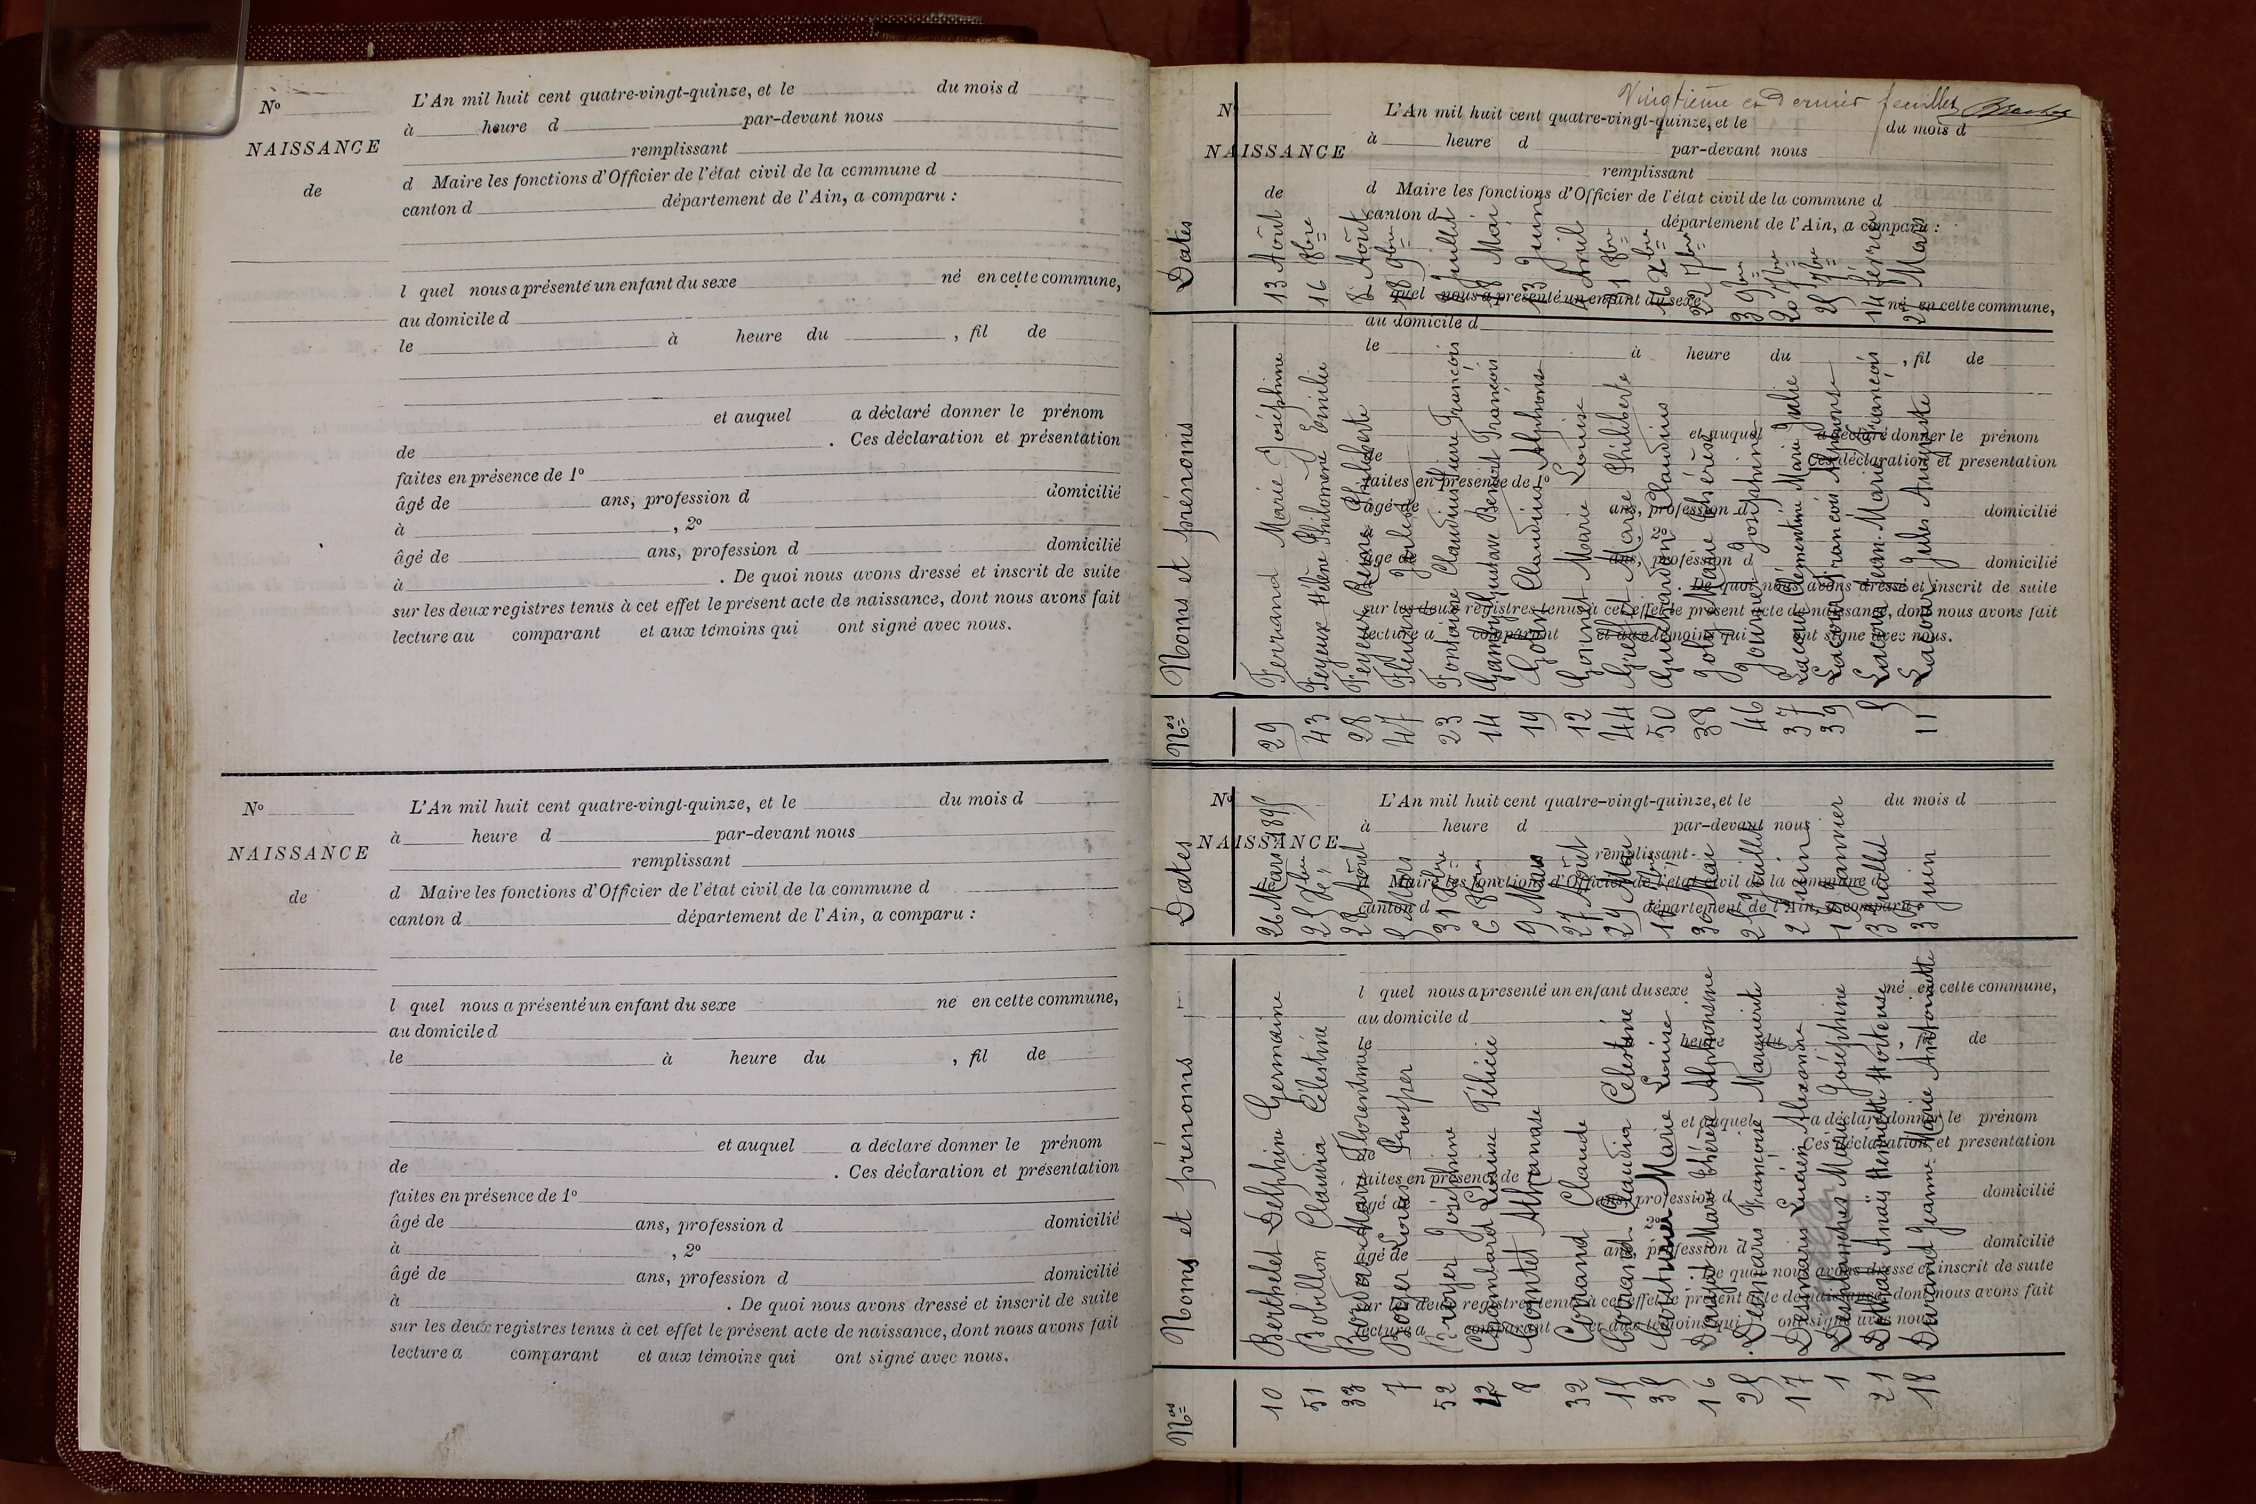 N°
L'An mil huit cent quatre-vingt-quinze, et le du mois d
à heure d par-devant nous
NAISSANCE
remplissant
de
d Maire les fonctions d'Officier de l'état civil de la commune d
canton d département de l'Ain, a comparu :
l quel nous a présenté un enfant du sexe né en cette commune,
au domicile d
le à heure du , fil de
et auquel a déclaré donner le prénom
de . Ces déclaration et présentation
faites en présence de 1°
âgé de ans, profession d domicilié
à , 2°
âgé de ans, profession d domicilié
à . De quoi nous avons dressé et inscrit de suite
sur les deux registres tenus à cet effet le présent acte de naissance, dont nous avons fait
lecture au comparant et aux témoins qui ont signé avec nous.
N°
L'An mil huit cent quatre-vingt-quinze, et le du mois d
à heure d par-devant nous
NAISSANCE
remplissant
de
d Maire les fonctions d'Officier de l'état civil de la commune d
canton d département de l'Ain, a comparu :
l quel nous a présenté un enfant du sexe né en cette commune,
au domicile d
le à heure du , fil de
et auquel a déclaré donner le prénom
de . Ces déclaration et présentation
faites en présence de 1°
âgé de ans, profession d domicilié
à , 2°
âgé de ans, profession d domicilié
à . De quoi nous avons dressé et inscrit de suite
sur les deux registres tenus à cet effet le présent acte de naissance, dont nous avons fait
lecture a comparant et aux témoins qui ont signé avec nous.
Vingtième et dernier feuillet
N°
L'An mil huit cent quatre-vingt-quinze, et le du mois d
à heure d par-devant nous
NAISSANCE
remplissant
de
d Maire les fonctions d'Officier de l'état civil de la commune d
canton d département de l'Ain, a comparu :
quel nous a présenté un enfant du sexe né en cette commune,
au domicile d
le à heure du , fil de
et auquel a déclaré donner le prénom
de Ces déclaration et présentation
faites en présence de 1°
âgé de ans, profession d domicilié
2°
âgé de ans, profession d domicilié
De quoi nous avons dressé et inscrit de suite
sur les deux registres tenus à cet effet le présent acte de naissance, dont nous avons fait
lecture a comparant et aux témoins qui ont signé avec nous.
N°
L'An mil huit cent quatre-vingt-quinze, et le du mois d
à heure d par-devant nous
NAISSANCE
remplissant
de
Maire les fonctions d'Officier de l'état civil de la commune d
canton d département de l'Ain, a comparu :
l quel nous a présenté un enfant du sexe né en cette commune,
au domicile d
le heure du fil de
et auquel a déclaré donner le prénom
Ces déclaration et présentation
faites en présence de
âgé de ans, profession d domicilié
2°
âgé de ans, profession d domicilié
De quoi nous avons dressé et inscrit de suite
sur les deux registres tenus à cet effet le présent acte de naissance, dont nous avons fait
lecture a comparant et aux témoins qui ont signé avec nous.
Nos Noms et prénoms Dates
10 Berthelet Delphine Germaine 26 Mars 1895
51 Bobillon Claudia Célestine 25 Xbre
33 Marie Florentine 28 Août
7 Boyer Louis Prosper 5 Mars
52 Joséphine 31 Xbre
42 Chambard Louise Félicie 6 8bre
8 Comtet Athanase 9 Mars
32 Conand Claude 27 Août
15 Claudia Célestine 29 Mai
35 Marie Louise
16 Marie Thérèse Alphonsine 30 Mai
25 Desmaris Françoise Marguerite 25 Juillet
17 Desmaris Lucien Alexandre 2 Juin
1 Desplanches Marie Joséphine 15 Janvier
21 Dothal Anaïs Henriette Hortense 3 Juillet
18 Durand Jeanne Marie Antoinette 3 Juin
Nos Noms et prénoms Dates
29 Ferrand Marie Joséphine 13 Août
43 Feyeux Hélène Philomène Emilie 16 8bre
28 Feyeux Reine Philiberte 8 Août
47 18 9bre
23 Fontaine Claudius Pierre François Juillet
14 Gamby Gustave Benoit François 28 Mai
19 Claudius Alphonse 13 Juin
12 Gonnet Marie Louise Avril
44 Marie Philiberte 21 8bre
50 Guichardon Claudius 16 Xbre
38 Joly Marie Thérèse 22 7bre
46 Journet Joséphine 3 9bre
37 Lacour Clémentine Marie Julie 20 7bre
39 Lacour François Alphonse 25 7bre
5 Lacour Jean Marie François 14 Février
11 Lacour Jules Auguste 27 Mars